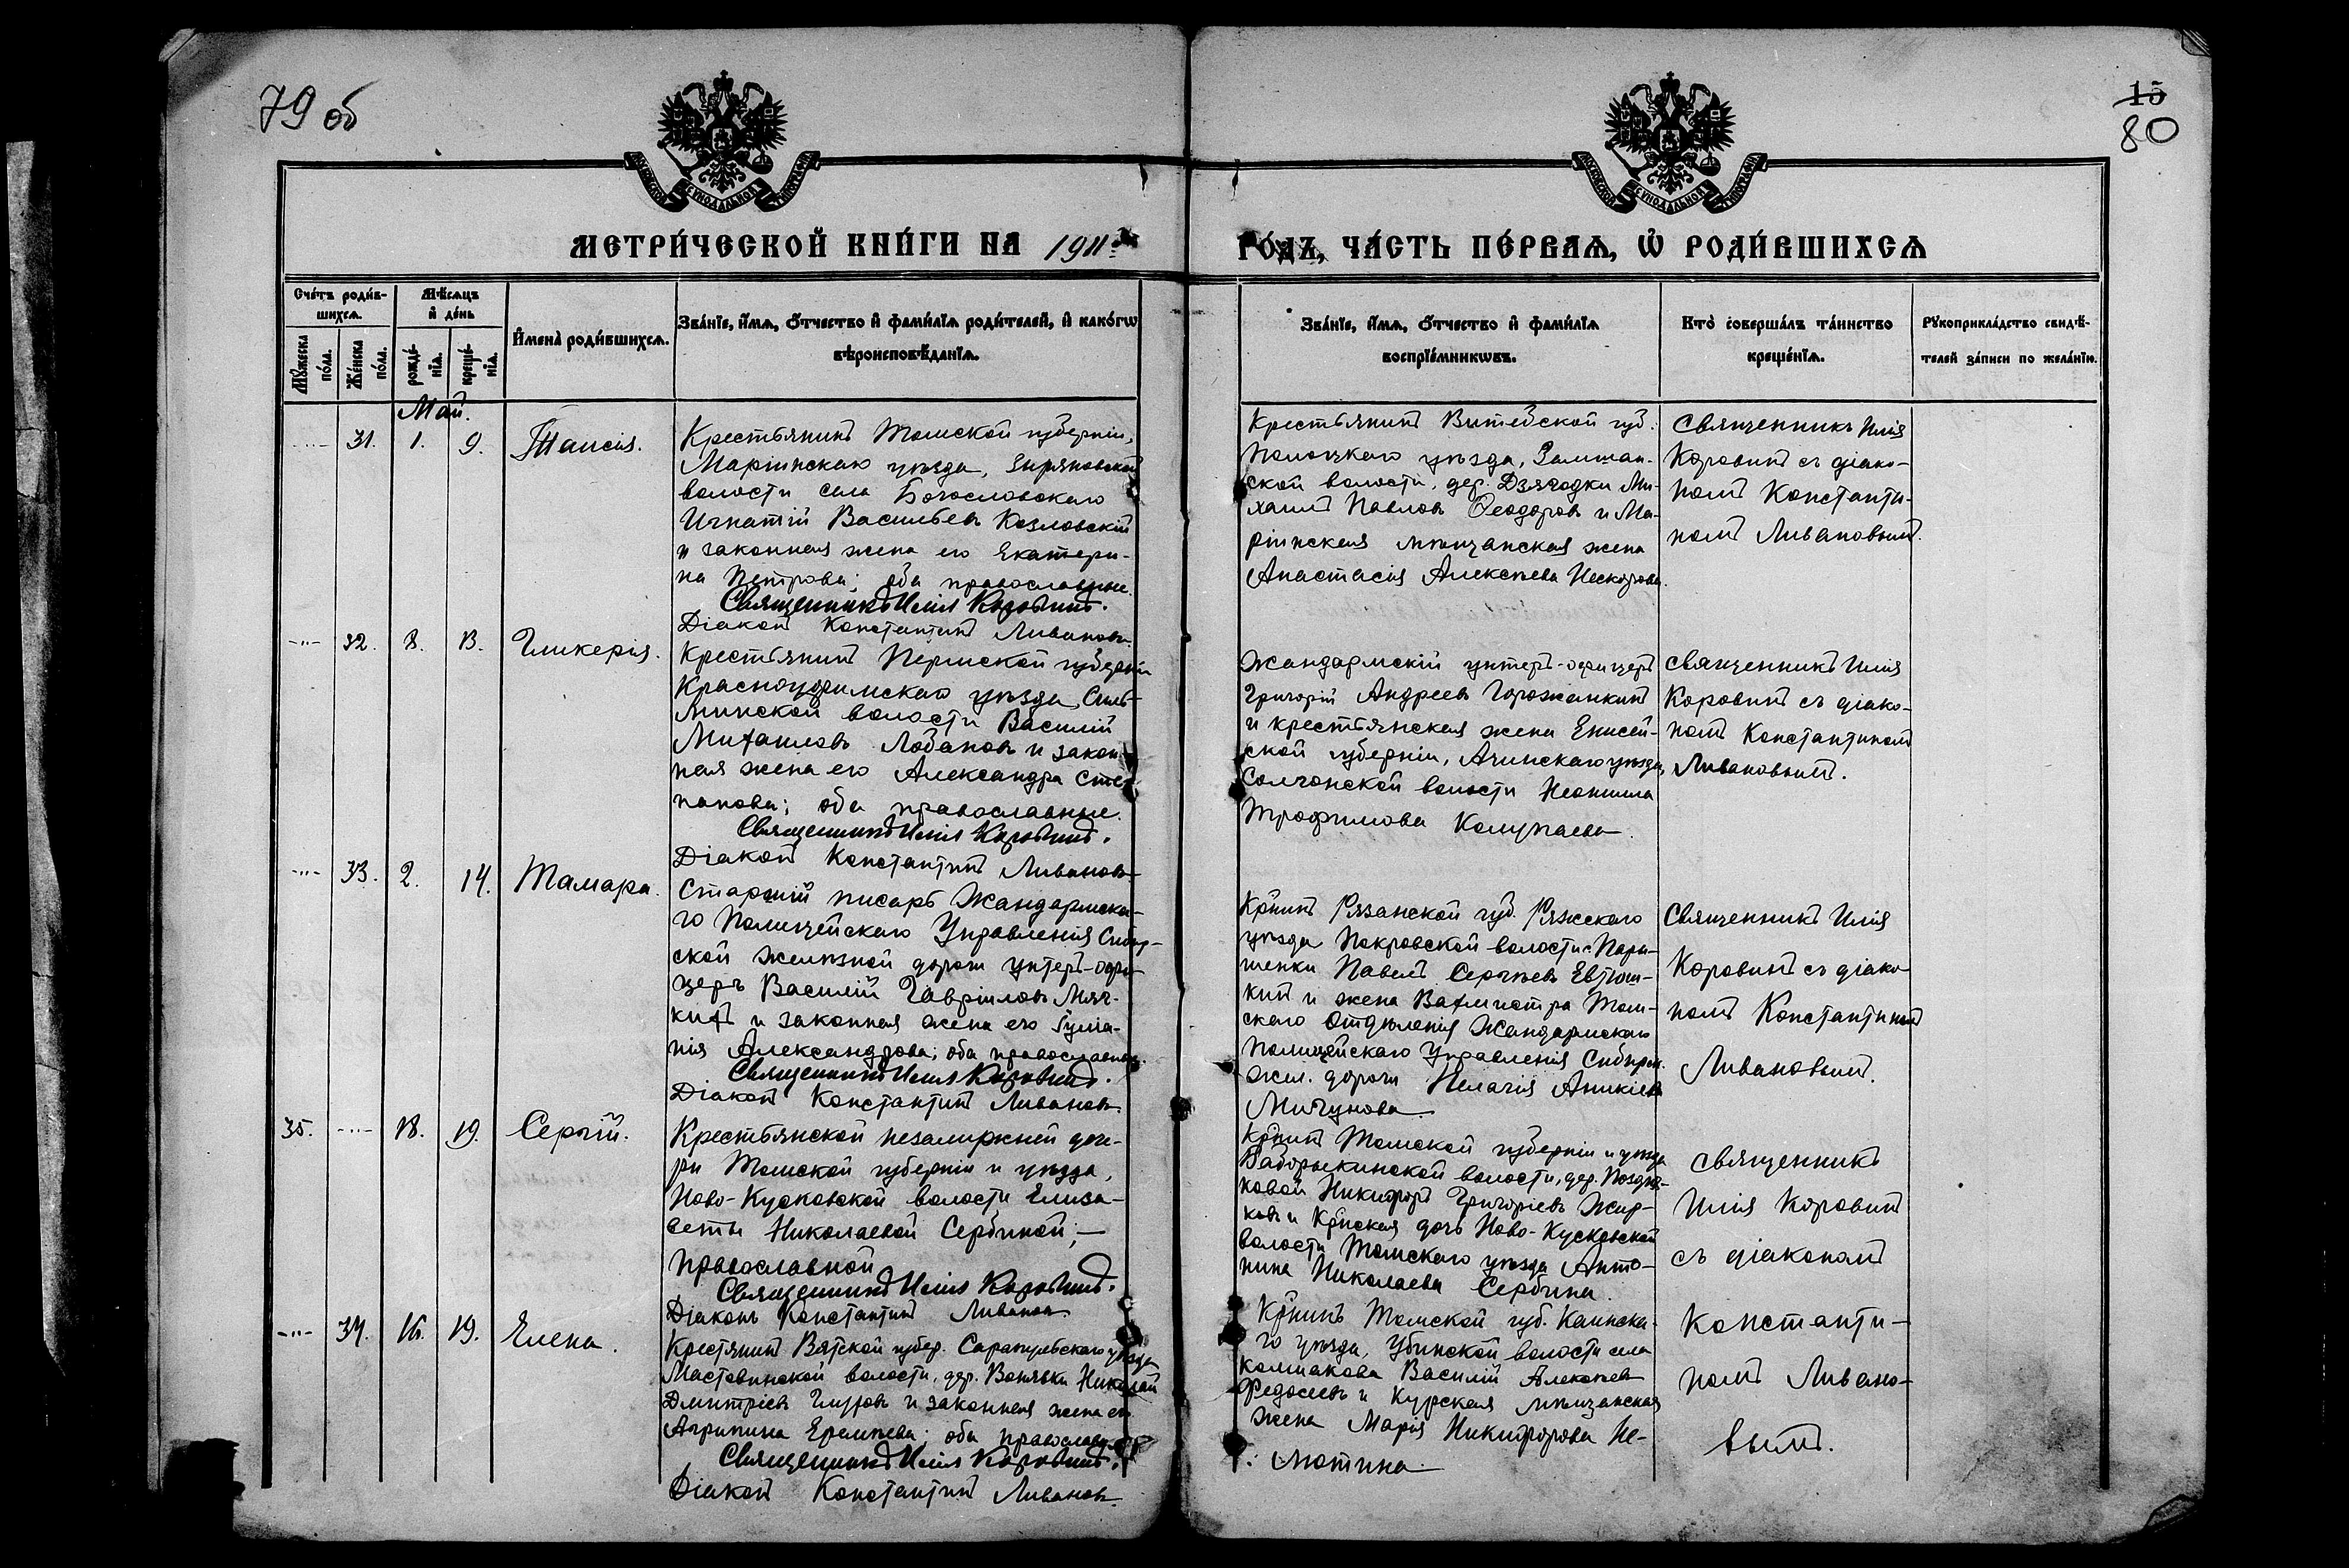 79 об
15
80
МОСКОВСКОЙ СУНОДАЛЬНОЙ ТИПОГРАФIИ
МОСКОВСКОЙ СУНОДАЛЬНОЙ ТИПОГРАФIИ
МЕТРИ́ЧЕСКОЙ КНИ́ГИ НА 1911й
ГО́ДЪ, ЧА́СТЬ ПЕ́РВАѦ, Ѡ РОДИ́ВШИХСѦ
Сче́тъ роди́в-
шихсѧ.
Мꙋ́жеска по́ла.
Же́нска по́ла.
Мѣ́сѧцъ
и҆ де́нь
рожде́-
нїѧ.
креще́-
нїѧ.
И҆мена̀ роди́вшихсѧ.
Зва́нїе, и҆́мѧ, ѻ҆́тчество и҆ фами́лїѧ роди́телей, и҆ како́гѡ
вѣроисповѣ́данїѧ.
Зва́нїе, и҆́мѧ, ѻ҆́тчество и҆ фами́лїѧ
воспрїе́мникѡвъ.
Кто̀ соверша́лъ та́инство
креще́нїѧ.
Рꙋкоприкла́дство свидѣ́-
телей за́писи по жела́нїю.
Май.
31. 1. 9. Таисія.
Крестьянинъ Томской губерніи,
Маріинскаго уѣзда, Зыряновской
волости села Богословскаго
Игнатій Васильевъ Козловскій
и законная жена его Екатери-
на Петрова; оба православные.
Священникъ Илія Коровинъ.
Діаконъ Константинъ Ливановъ
Крестьянинъ Витебской губ.
Полоцкаго уѣзда,
ской волости, дер. Дзягодки Ми-
хаилъ Павловъ Ѳеодоровъ и Ма-
ріинская мѣщанская жена
Анастасія Алексѣева
Священникъ Илія
Коровинъ съ діако-
номъ Константи-
номъ Ливановымъ.
32. 8. 13. Гликерія.
Крестьянинъ Пермской губерніи
Красноуфимскаго уѣзда,
Василій
Михаиловъ Лобановъ и закон-
ная жена его Александра Сте-
панова; оба православные.
Священникъ Илія Коровинъ.
Діаконъ Константинъ Ливановъ
Жандармскій унтеръ-офицеръ
Григорій Андреевъ Горожанкинъ
и крестьянская жена Енисей-
ской губерніи, Ачинскаго уѣзда,
Солгонской волости Неонилла
Трофимова Колупаева.
Священникъ Илія
Коровинъ съ діако-
номъ Константиномъ
Ливановымъ.
33. 2. 14. Тамара.
Старшій писарь Жандармска-
го Полицейскаго Управленія Сибир-
ской желѣзной дороги унтеръ-офи-
церъ Василій Гавріиловъ Мяг-
кихъ и законная жена его Іуліа-
нія Александрова; оба православные.
Священникъ Илія Коровинъ.
Діаконъ Константинъ Ливановъ.
Кр̃нинъ Рязанской губ. Ряжскаго
уѣзда Покровской волости с. Пара-
шенки Павелъ Сергѣевъ Евтюш-
кинъ и жена Вахмистра Том-
скаго Отдѣленія Жандармскаго
Полицейскаго Управленія Сибирск.
жел. дороги Пелагія Аникіева
Мичунова
Священникъ Илія
Коровинъ съ діако-
номъ Константиномъ
Ливановымъ.
35. 18. 19. Сергій.
Крестьянской незамужней доче-
ри Томской губерніи и уѣзда,
Ново-Кусковской волости Елиза-
веты Николаевой Сербиной,—
православной
Священникъ Илія Коровинъ.
Діаконъ Константинъ Ливановъ
Кр̃нинъ Томской губерніи и уѣзда
Бабарыкинской волости, дер. Поздня-
ковой Никифоръ Григоріевъ Жир-
ковъ и Кр̃нская дочь Ново-Кусковской
волости Томскаго уѣзда Анто-
нина Николаева Сербина.
священникъ
Илія Коровинъ
съ діакономъ
34. 16. 19. Елена.
Крестянинъ Вятской губер. Сарапульскаго уѣзда
Мостовинской волости, дер. Вонявки Николай
Дмитріевъ Глуховъ и законная жена его
Агрипина Еремѣева; оба православные
Священникъ Илія Коровинъ.
Діаконъ Константинъ Ливановъ.
Кр̃нинъ Томской губ. Каинска-
го уѣзда, Убинской волости села
Колмакова Василій Алексѣевъ
Федосеевъ и Курская мѣщанская
жена Марія Никифорова Не-
мотина
Константи-
номъ Ливано-
вымъ.